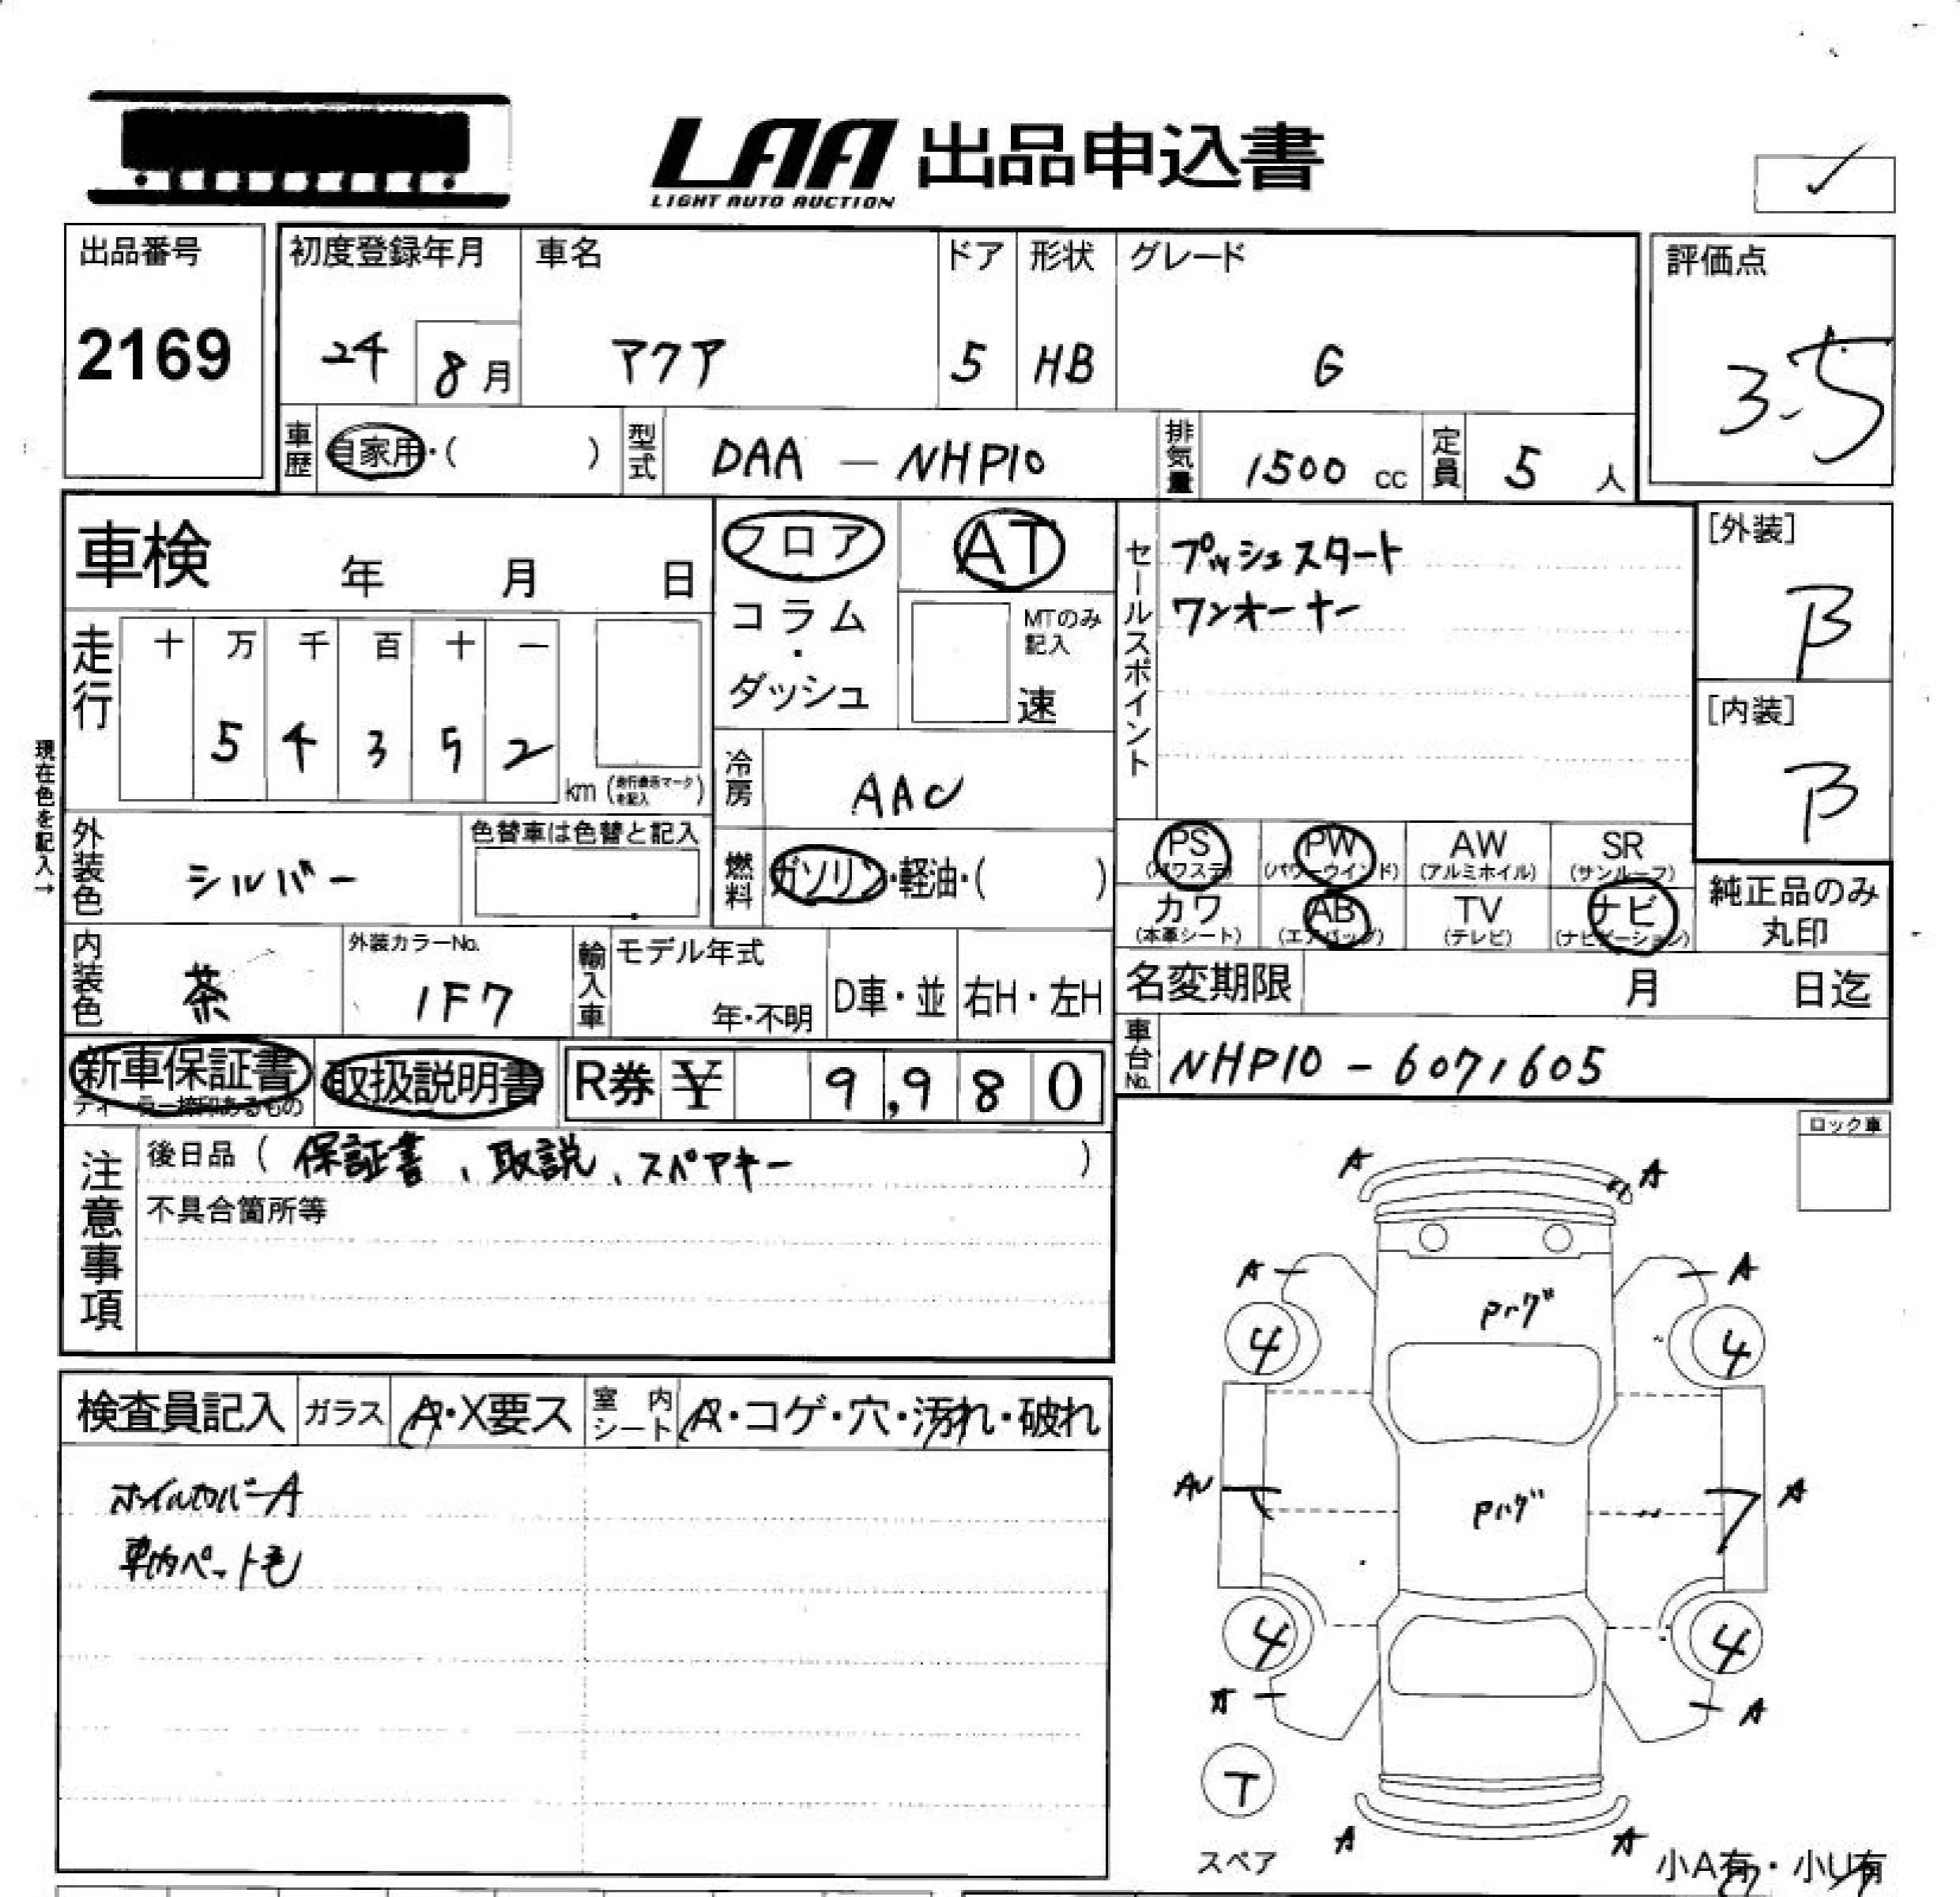 LAA 出品申込書
LIGHT AUTO AUCTION
✓
出品番号
2169
初度登録年月
24
8月
車名
アクア
ドア
5
形状
HB
グレード
G
評価点
3.5
車歴
自家用・( )
型式
DAA － NHP10
排気量
1500 cc
定員
5 人
車検 年 月 日
フロア
・
コラム
・
ダッシュ
AT
MTのみ
記入
速
セールスポイント
プッシュスタート
ワンオーナー
[外装]
B
[内装]
B
走行
十 万 千 百 十 一
5 4 3 5 2
km
現在色を記入→
冷房
AAC
外装色
シルバー
色替車は色替と記入
燃料
ガソリン・軽油・( )
PS
(パワステ)
PW
(パワーウインド)
AW
(アルミホイル)
SR
(サンルーフ)
カワ
(本革シート)
AB
(エアバッグ)
TV
(テレビ)
ナビ
(ナビゲーション)
純正品のみ
丸印
内装色
茶
外装カラーNo.
1F7
輸入車
モデル年式
年・不明
D車・並
右H・左H
名変期限 月 日迄
車台No.
NHP10 - 6071605
新車保証書
ディーラー捺印あるもの
取扱説明書
R券 ¥ 9,980
注意事項
後日品 ( 保証書、取説、スペアキー )
不具合箇所等
ロック車
検査員記入
ガラス
A・X要ス
室内シート
A・コゲ・穴・汚れ・破れ
ホイルカバーA
車内ペット毛
A A
A A
4 4
AU A
4 4
A A
T
スペア
A A
小A有・小U有